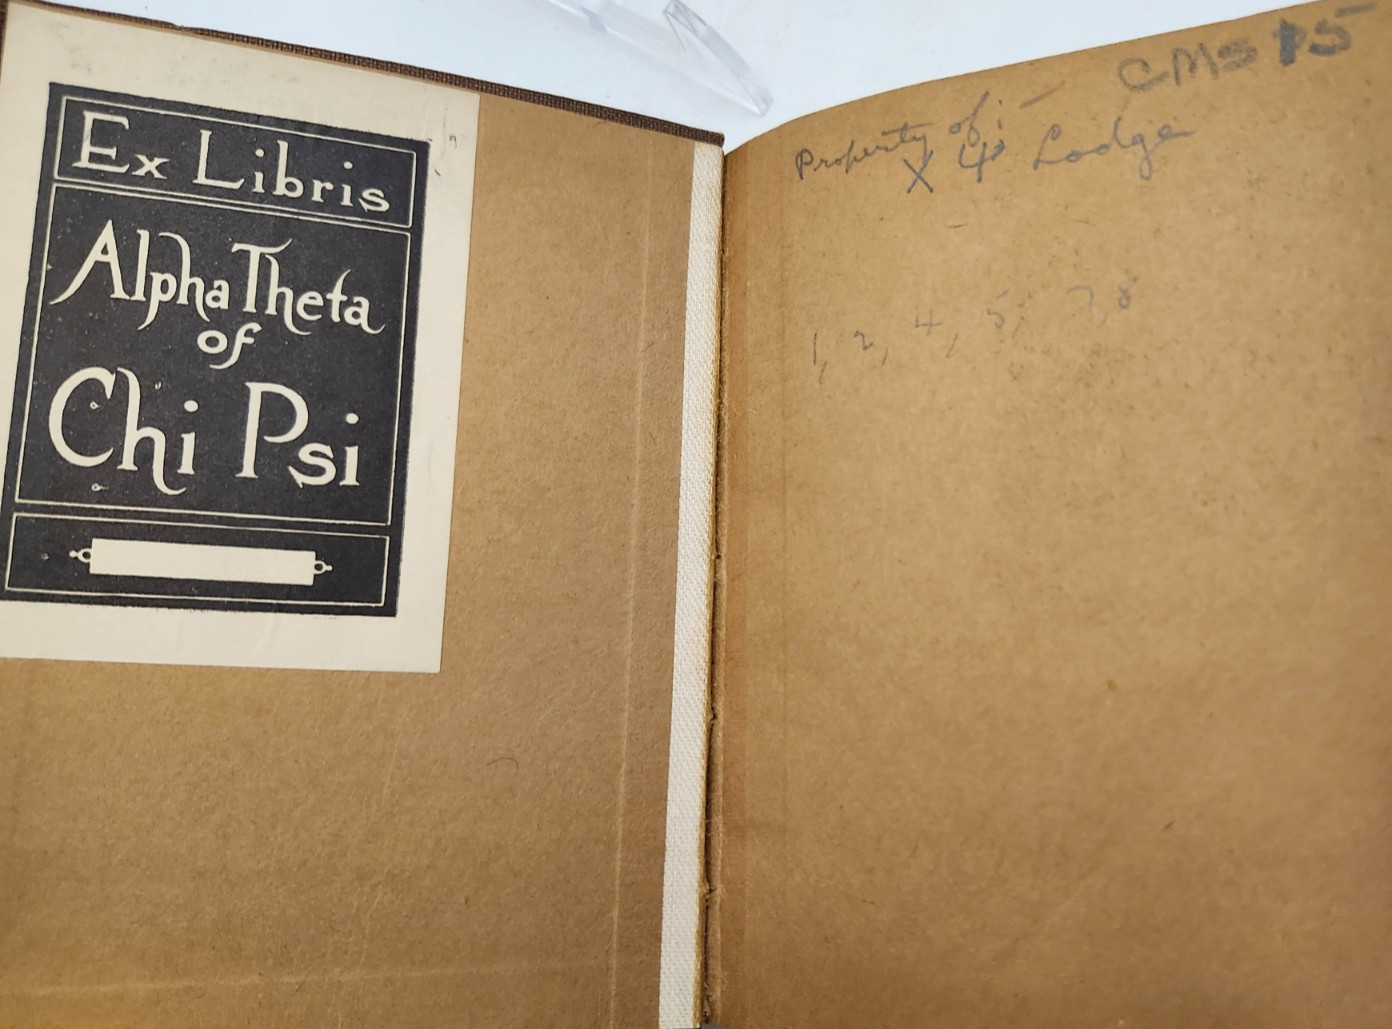 Ex Libris
Alpha Theta
of
Chi Psi
CMS 15
Property of:-
X Ψ Lodge
1, 2, 4, 5, 7, 8